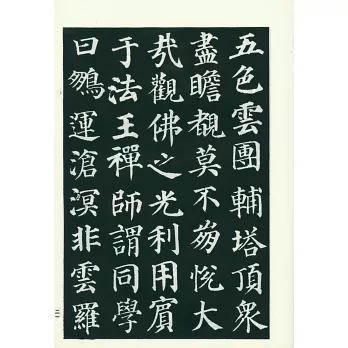 五色雲團輔塔頂眾
盡瞻覩莫不崩悅大
哉觀佛之光利用賓
于法王禪師謂同學
曰鵬運滄溟非雲羅